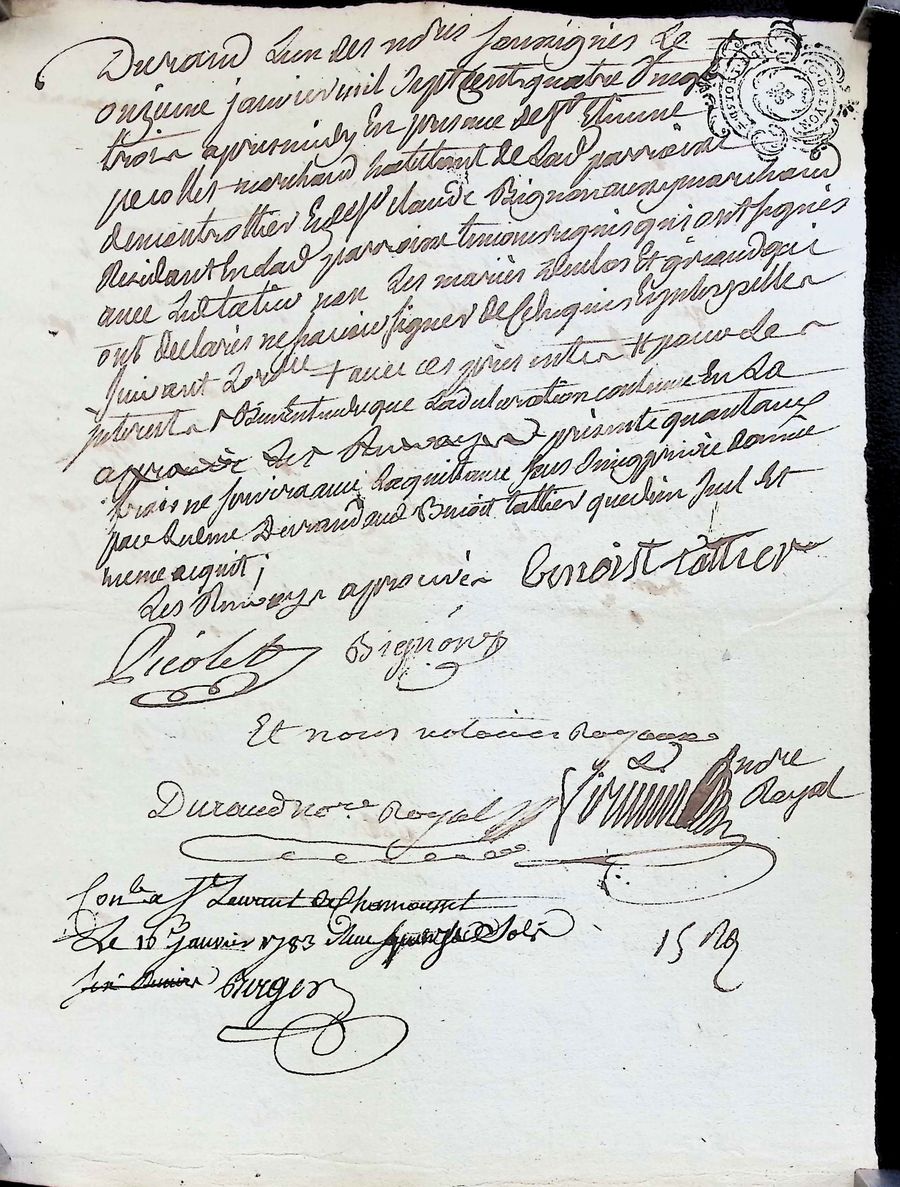 Durand L'un des no.res soussignés Le
onzieme janvier mil sept cent quatre vingt
trois apres midy En presence de Sr Etienne
picollet marchand habitant de Lad parroisse
de montrottier Et de Sr claude Bignon aussy marchand
Residant En lad parroisse temoins requis qui ont signés
avec Led tatier non Les mariés Et giraud qui
ont declarés ne scavoir signer de Ce Enquis Et interpellés
suivant L'ord.ce + avec ces presentes # pour Les
interest Bien Entendu que La declaration contenue En La
approuvée Les Renvoyes presente quantaux
frais ne servira avec La quittance sous seing privée donnée
par Ledme Durand aud Benoit tattier que d'un seul Et
meme acquit ;
Les Renvoye approuvés Benoist tattier
Picolet Bignon
Et nous notaires Royaux
Durand no.re Royal André Royal
Con.lé a St Laurent de Chamousset
Le 16 janvier 1783 Sols
Berger
15
GENER DE LYON